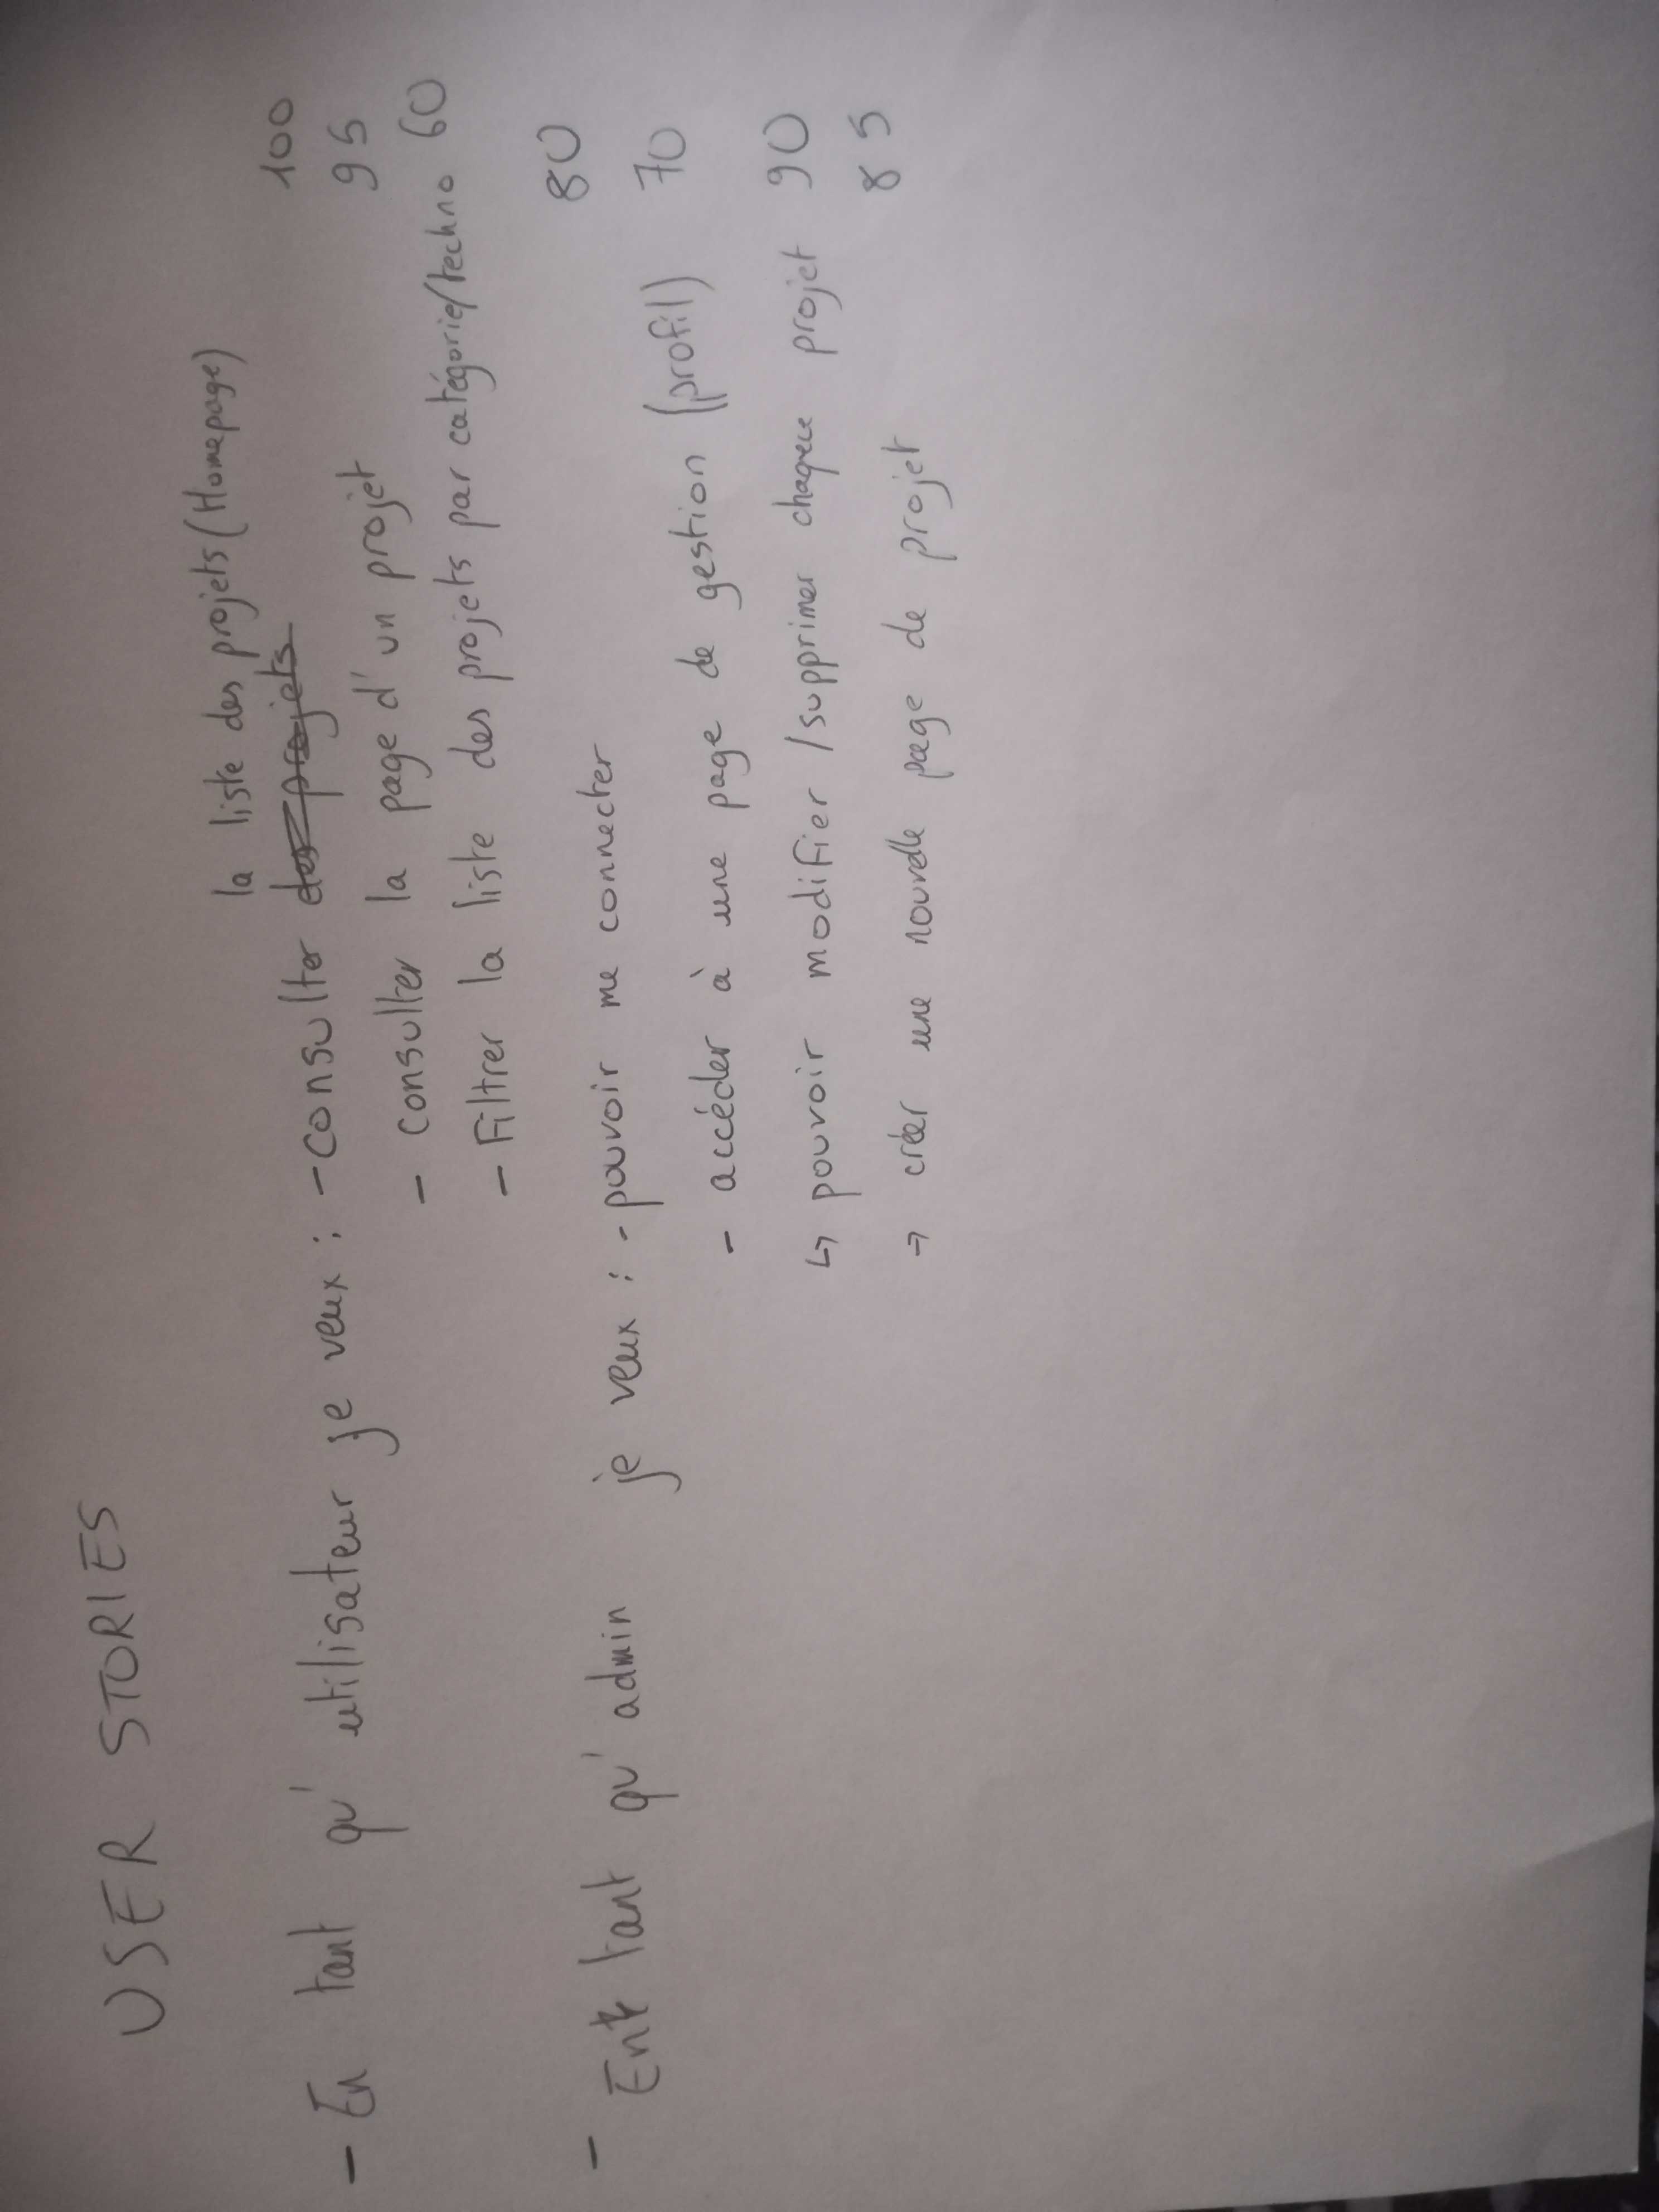 USER STORIES
la liste des projets (Homepage)
- En tant qu'utilisateur je veux : - consulter des projets 100
- consulter la page d'un projet 95
- Filtrer la liste des projets par catégorie/techno 60
- Ent tant qu'admin je veux : - pouvoir me connecter 80
- accéder à une page de gestion (profil) 70
↳ pouvoir modifier / supprimer chaque projet 90
→ créer une nouvelle page de projet 85